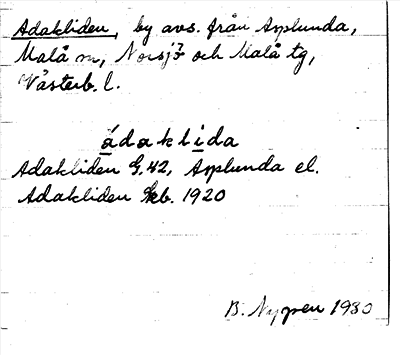 Adakliden, by avs. från Asplunda,
Malå sn, Norsjö och Malå tg,
Västerb. l.
ádaklida
Adakliden G. 42, Asplunda el.
Adakliden Skb. 1920
B. Nygren 1930